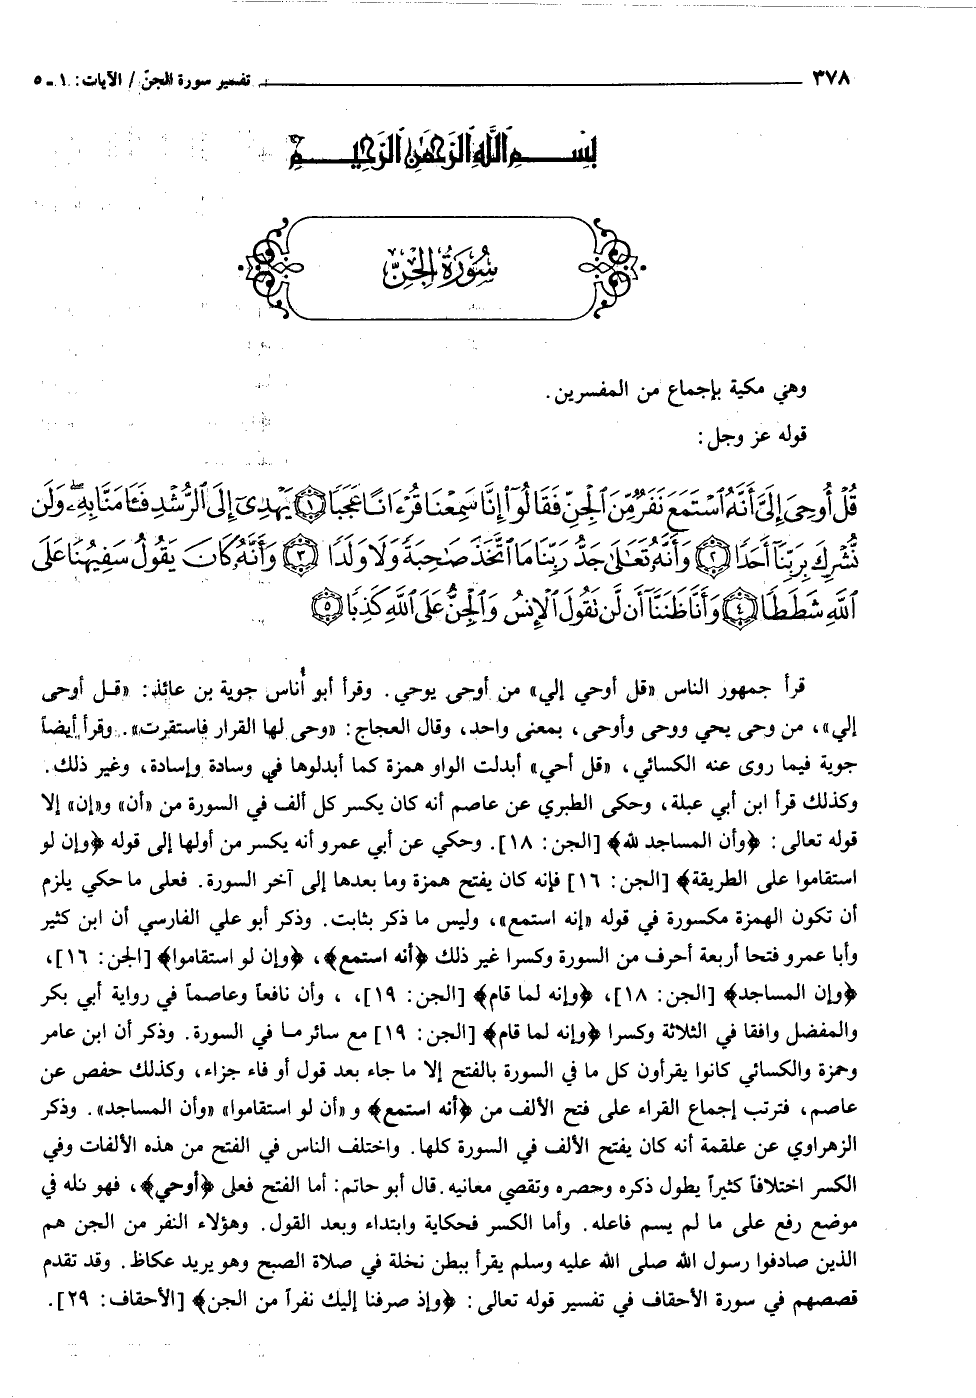 ٣٧٨ تفسير سورة الجنّ / الآيات: ١ ـ ٥
بِسْمِ اللَّهِ الرَّحْمَٰنِ الرَّحِيمِ
سُورَةُ الجِنّ
وهي مكية بإجماع من المفسرين.
قوله عز وجل:
قُلْ أُوحِيَ إِلَيَّ أَنَّهُ ٱسْتَمَعَ نَفَرٌ مِّنَ ٱلْجِنِّ فَقَالُوٓا۟ إِنَّا سَمِعْنَا قُرْءَانًا عَجَبًا ١ يَهْدِىٓ إِلَى ٱلرُّشْدِ فَـَٔامَنَّا بِهِۦ وَلَن
نُّشْرِكَ بِرَبِّنَآ أَحَدًا ٢ وَأَنَّهُۥ تَعَٰلَىٰ جَدُّ رَبِّنَا مَا ٱتَّخَذَ صَٰحِبَةً وَلَا وَلَدًا ٣ وَأَنَّهُۥ كَانَ يَقُولُ سَفِيهُنَا عَلَى
ٱللَّهِ شَطَطًا ٤ وَأَنَّا ظَنَنَّآ أَن لَّن نَقُولَ ٱلْإِنسُ وَٱلْجِنُّ عَلَى ٱللَّهِ كَذِبًا ٥
قرأ جمهور الناس «قل أوحي إلي» من أوحى يوحي. وقرأ أبو أُناس جوية بن عائذ: «قـل أوحى
إلي»، من وحى يحي ووحى وأوحى، بمعنى واحد، وقال العجاج: «وحى لها القرار فاستقرت». وقرأ أيضاً
جوية فيما روى عنه الكسائي، «قل أحي» أبدلت الواو همزة كما أبدلوها في وسادة وإسادة، وغير ذلك.
وكذلك قرأ ابن أبي عبلة، وحكى الطبري عن عاصم أنه كان يكسر كل ألف في السورة من «أن» و«إن» إلا
قوله تعالى: ﴿وأن المساجد لله﴾ [الجن: ١٨]. وحكي عن أبي عمرو أنه يكسر من أولها إلى قوله ﴿وإن لو
استقاموا على الطريقة﴾ [الجن: ١٦] فإنه كان يفتح همزة وما بعدها إلى آخر السورة. فعلى ما حكي يلزم
أن تكون الهمزة مكسورة في قوله «إنه استمع»، وليس ما ذكر بثابت. وذكر أبو علي الفارسي أن ابن كثير
وأبا عمرو فتحا أربعة أحرف من السورة وكسرا غير ذلك ﴿أنه استمع﴾، ﴿وإن لو استقاموا﴾ [الجن: ١٦]،
﴿وإن المساجد﴾ [الجن: ١٨]، ﴿وإنه لما قام﴾ [الجن: ١٩]، ، وأن نافعاً وعاصماً في رواية أبي بكر
والمفضل وافقا في الثلاثة وكسرا ﴿وإنه لما قام﴾ [الجن: ١٩] مع سائر مـا في السورة. وذكر أن ابن عامر
وحمزة والكسائي كانوا يقرأون كل ما في السورة بالفتح إلا ما جاء بعد قول أو فاء جزاء، وكذلك حفص عن
عاصم، فترتب إجماع القراء على فتح الألف من ﴿أنه استمع﴾ و«أن لو استقاموا» «وأن المساجد». وذكر
الزهراوي عن علقمة أنه كان يفتح الألف في السورة كلها. واختلف الناس في الفتح من هذه الألفات وفي
الكسر اختلافاً كثيراً يطول ذكره وحصره وتقصي معانيه. قال أبو حاتم: أما الفتح فعلى ﴿أوحي﴾، فهو كله في
موضع رفع على ما لم يسم فاعله. وأما الكسر فحكاية وابتداء وبعد القول. وهؤلاء النفر من الجن هم
الذين صادفوا رسول الله صلى الله عليه وسلم يقرأ ببطن نخلة في صلاة الصبح وهو يريد عكاظ. وقد تقدم
قصصهم في سورة الأحقاف في تفسير قوله تعالى: ﴿وإذ صرفنا إليك نفراً من الجن﴾ [الأحقاف: ٢٩].